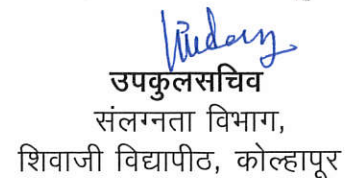 उपकुलसचिव
संलग्नता विभाग,
शिवाजी विद्यापीठ, कोल्हापूर